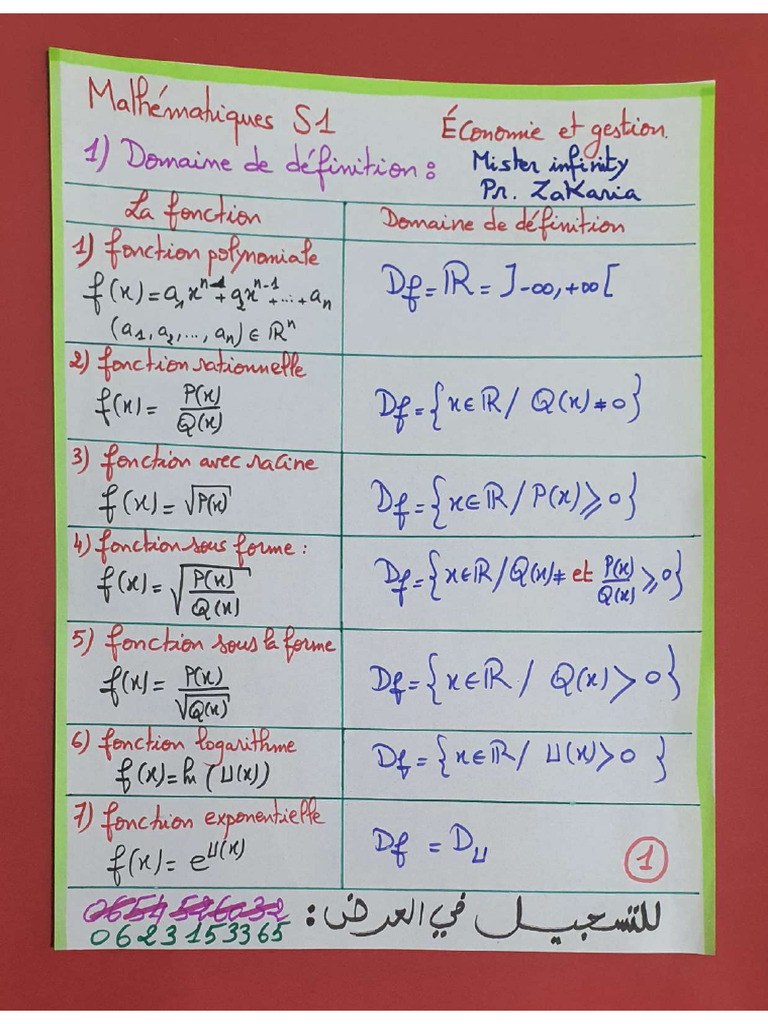 Mathématiques S1
Économie et gestion.
1) Domaine de définition :
Mister infinity
Pr. ZaKaria
La fonction
Domaine de définition
1) fonction polynomiale
f(x) = a₁xⁿ⁻¹ + a₂xⁿ⁻¹ + ... + aₙ
(a₁, a₂, ..., aₙ) ∈ ℝⁿ
Df = ℝ = ]-∞, +∞[
2) fonction rationnelle
f(x) = P(x)/Q(x)
Df = {x ∈ ℝ / Q(x) ≠ 0}
3) fonction avec racine
f(x) = √P(x)
Df = {x ∈ ℝ / P(x) ⩾ 0}
4) fonction sous forme :
f(x) = √(P(x)/Q(x))
Df = {x ∈ ℝ / Q(x) ≠ et P(x)/Q(x) ⩾ 0}
5) fonction sous la forme
f(x) = P(x)/√Q(x)
Df = {x ∈ ℝ / Q(x) > 0}
6) fonction logarithme
f(x) = ln (U(x))
Df = {x ∈ ℝ / U(x) > 0 }
7) fonction exponentielle
f(x) = e^U(x)
Df = D_U
1
للتسجيل في العرض :
0623153365